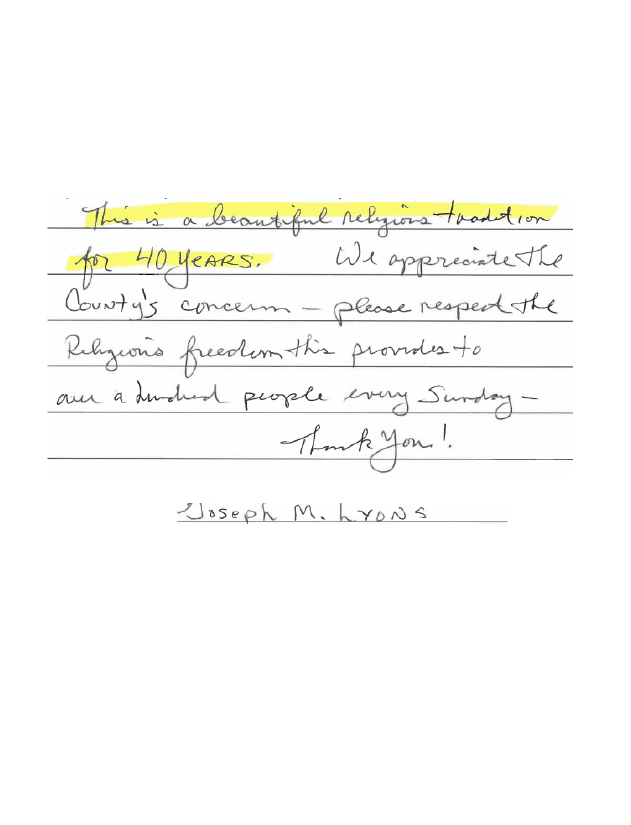 This is a beautiful religious tradition
for 40 YEARS. We appreciate the
County's concern – please respect the
Religious freedom this provides to
over a hundred people every Sunday –
Thank You!
Joseph M. Lyons